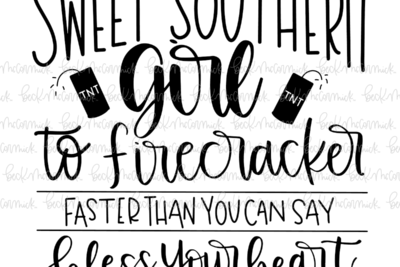 SWEET SOUTHERN
girl
TNT
TNT
to firecracker
FASTER THAN YOU CAN SAY
bless your heart